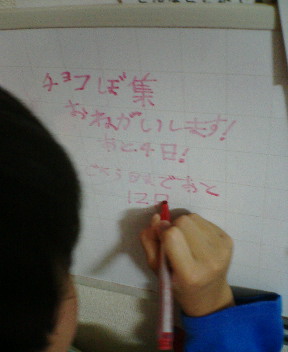 チョコぼ集
おねがいします!
あと4日!
であと
12日